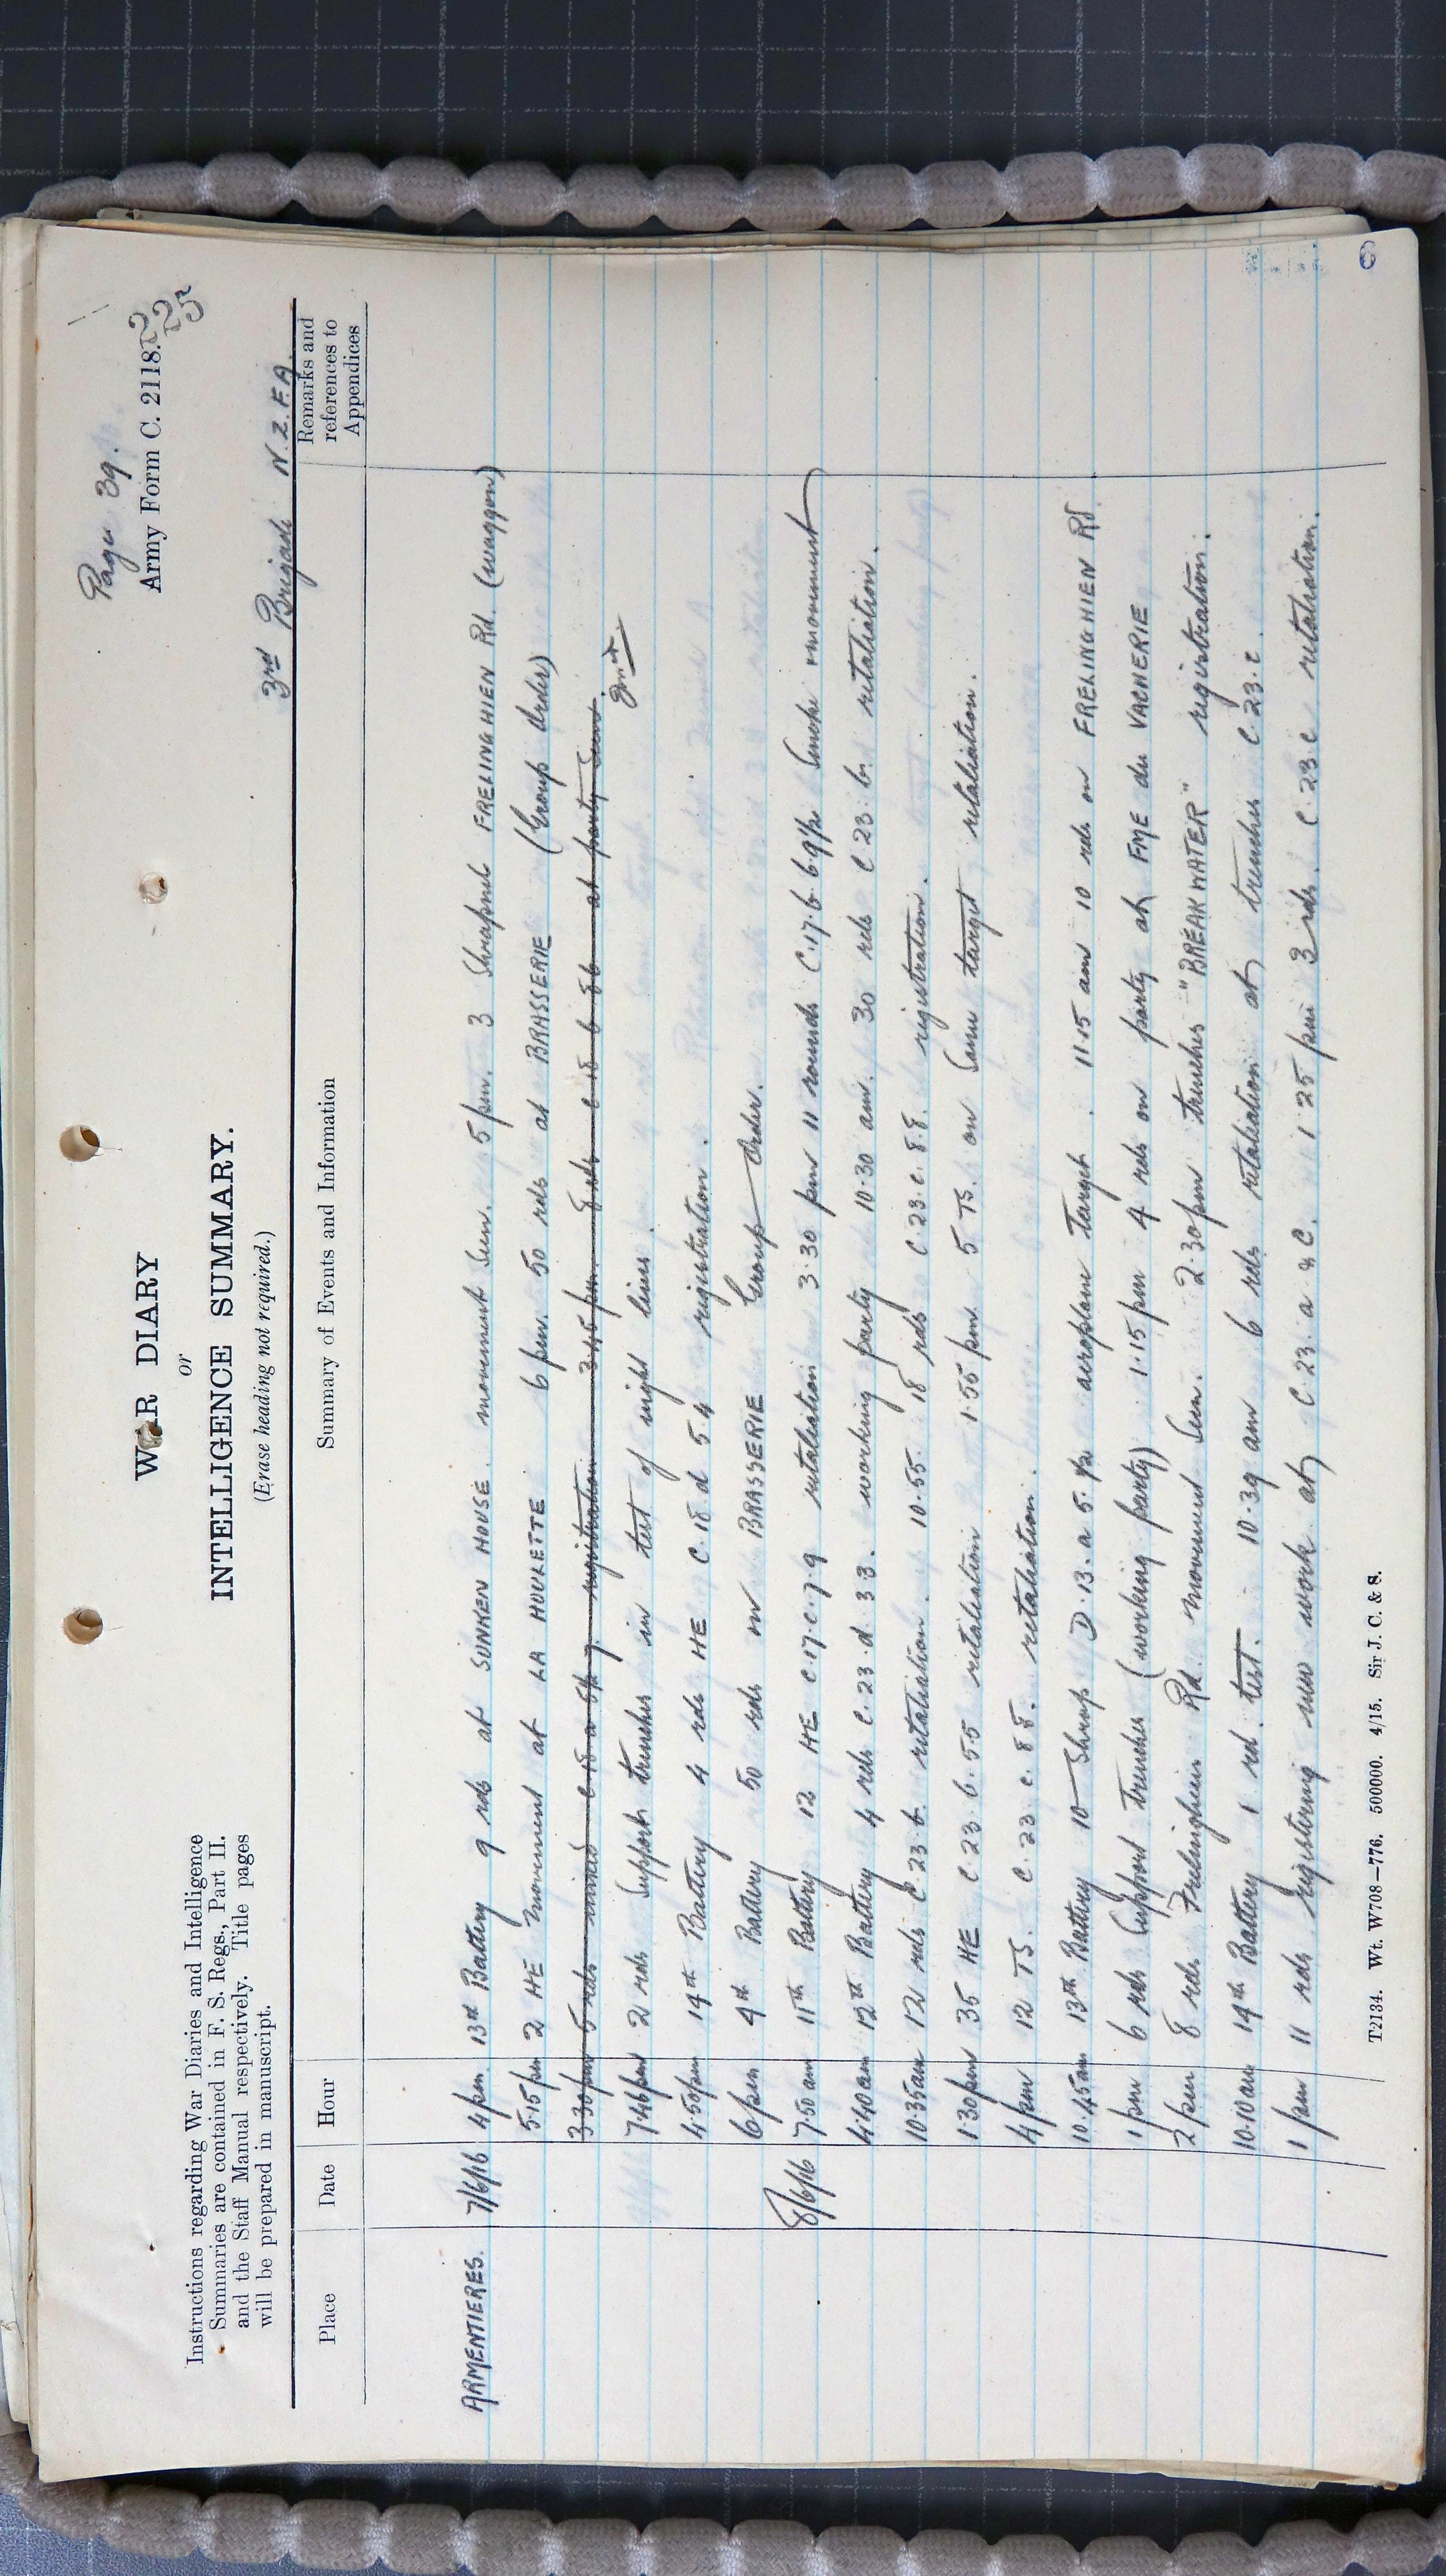 Page 39.
Army Form C. 2118.
225
WAR DIARY
or
INTELLIGENCE SUMMARY.
(Erase heading not required.)
3rd Brigade N.Z.F.A.
Instructions regarding War Diaries and Intelligence
Summaries are contained in F. S. Regs., Part II.
and the Staff Manual respectively. Title pages
will be prepared in manuscript.
Place Date Hour Summary of Events and Information Remarks and references to Appendices
ARMENTIERES. 7/6/16 4 pm. 13th Battery 9 rds at SUNKEN HOUSE. movement seen. 5 pm. 3 Shrapnel FRELINGHIEN Rd. (waggon)
5.15 pm 2 HE movement at LA HOULETTE 6 pm. 50 rds at BRASSERIE (Group Order)
3.30 pm 5 rds C 18 a 5½ 7. registration 3.45 pm. 8 rds C 18 b 86 at party seen.
7.46 pm 2 rds Support trenches in test of night lines.
4.50 pm 14th Battery 4 rds HE C.18.d 5.4 registration.
6 pm 4th Battery 50 rds in BRASSERIE Group Order.
8/6/16 7.50 am 11th Battery 12 HE C.17.c.7.9 retaliation 3.30 pm 11 rounds C.17.b.6.9½ Smoke & movement
4.40 am 12th Battery 4 rds C.23.d.33. working party 10.30 am. 30 rds C 23.b. retaliation.
10.35 am 12 rds C.23.b. retaliation. 10.55. 18 rds C.23.c.8.8. registration.
1.30 pm 35 HE C.23.b.55 retaliation 1.55 pm. 5 TS. on same target retaliation.
4 pm 12 TS. C.23.c.88. retaliation.
10.45 am 13th Battery 10 Shrap D.13.a 5.½ aeroplane Target. 11.15 am 10 rds on FRELINGHIEN Rd
1 pm 6 rds Support trenches (working party) 1.15 pm 4 rds on party at FME du VACHERIE
2 pm 8 rds Frelinghien Rd. movement seen. 2.30 pm trenches "BREAKWATER" registration.
10.10 am 14th Battery 1 rd. test. 10.39 am 6 rds retaliation at trenches C.23.c.
1 pm 11 rds registering new work at C.23.a & C. 1.25 pm 3 rds. C 23.c retaliation.
T2134. Wt. W708—776. 500000. 4/15. Sir J. C. & S.
6